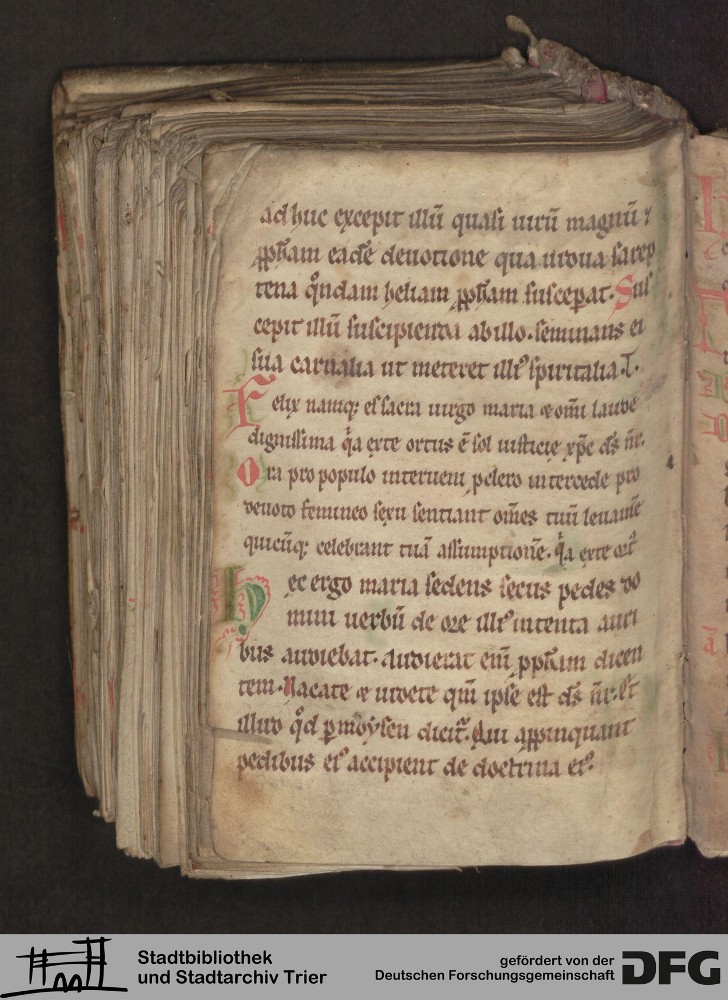 ad huc excepit illū quasi uirū magnū ⁊
ꝓph̄am eadē deuotione qua uidua sarep
tena qͦndam heliam ꝓph̄am susceꝑat. Sus
cepit illū suscipienda ab illo. seminans ei
sua carnalia ut meteret illiꝰ spiritalia. T.
Felix namq; es sacra uirgo maria ⁊ om̄i laude
dignissima q̄a ex te ortus ē sol iusticie xp̄c ds̄ nr̄.
Ora pro populo interueni pro clero intercede pro
deuoto femineo sexu sentiant om̄es tuū leuam̄e
quicūq; celebrant tuā assumptionē. q̄a ex te ort̄
Hec ergo maria sedens secus pedes do
mini uerbū de ore illiꝰ intenta auri
bus audiebat. Audierat eni̅ ꝓph̄am dicen
tem. Uacate ⁊ uidete qm̄ ipse est ds̄ nr̄. Et
illud qͦd ꝑ moysen dicit̄. Qui appinquant
pedibus eiꝰ accipient de doctrina eiꝰ.
Stadtbibliothek
und Stadtarchiv Trier
gefördert von der
Deutschen Forschungsgemeinschaft
DFG